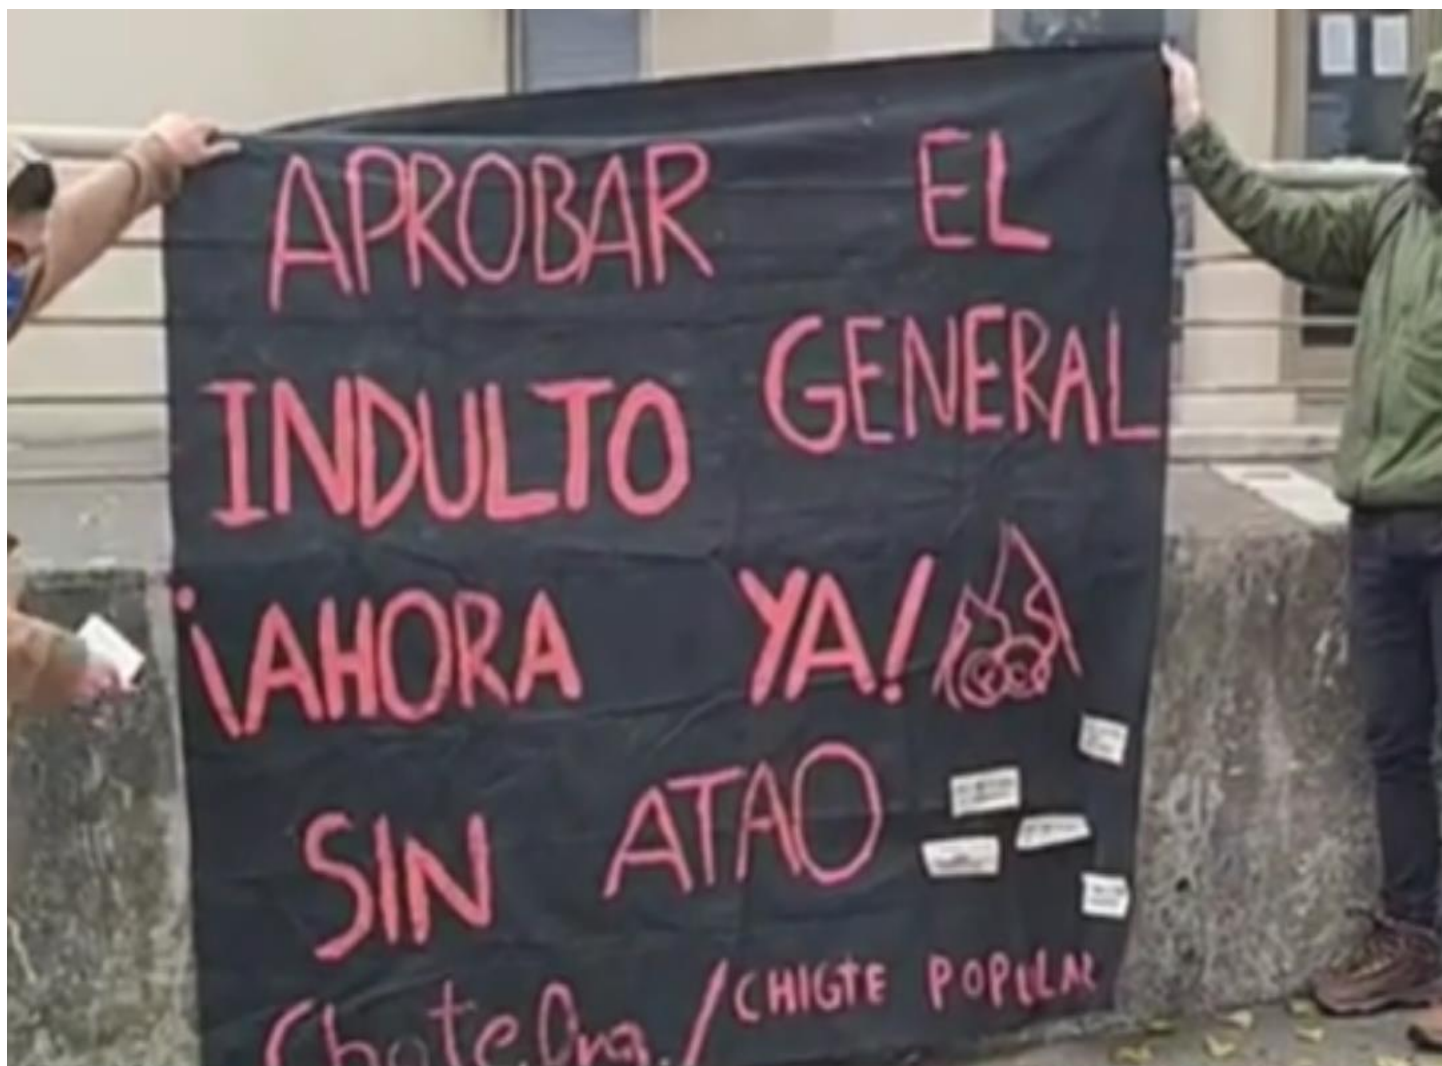 APROBAR EL
INDULTO GENERAL
¡AHORA YA!
SIN ATAO
/ CHIGTE POPULAR